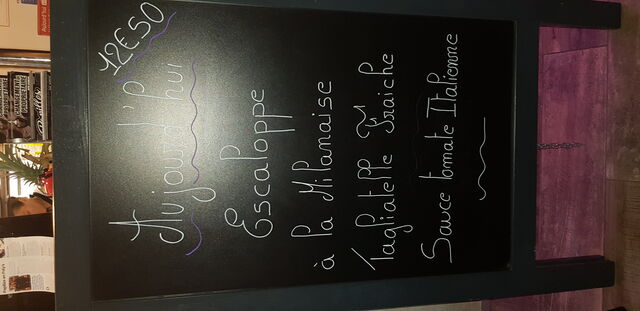 12E50
Aujourd'hui
Escaloppe
à la Milanaise
Tagliatelle Fraiche
Sauce tomate Italienne